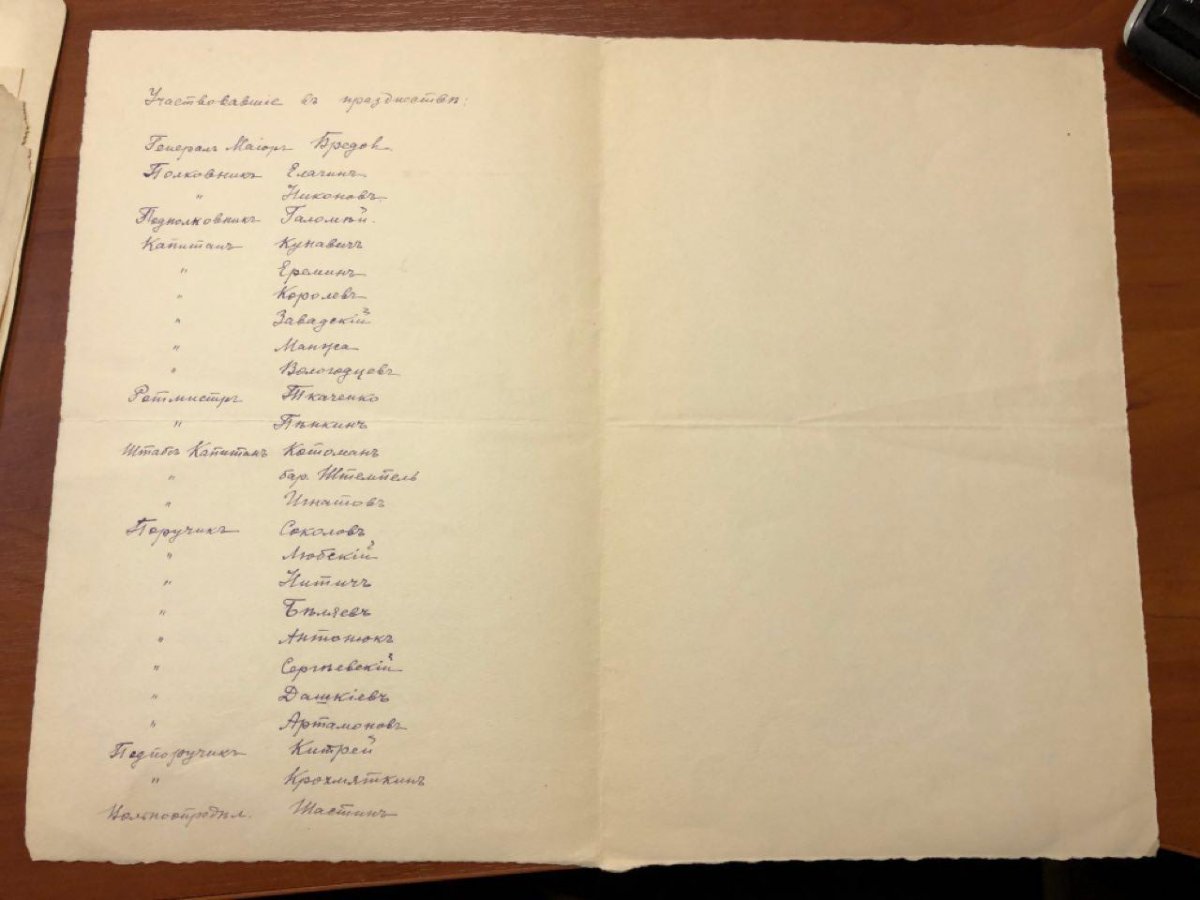 Участвовавшіе въ празднествѣ:
Генералъ Маіоръ Бредов
Полковникъ Елагинъ
" Никоновъ
Подполковникъ Галомѣй.
Капитанъ Кунавичъ
" Ереминъ
" Королевъ
" Завадскій
" Манжа
" Вологодцевъ
Ротмистръ Ткаченко
" Пѣнкинъ
Штабсъ Капитанъ Котоманъ
" бар. Штемпель
" Игнатовъ
Поручикъ Соколовъ
" Любскій
" Нитичъ
" Бѣляевъ
" Антонюкъ
" Сергѣевскій
" Дашкіевъ
" Артамоновъ
Подпоручикъ Китрей
" Крохмяткинъ
Вольноопредѣл. Шастинъ